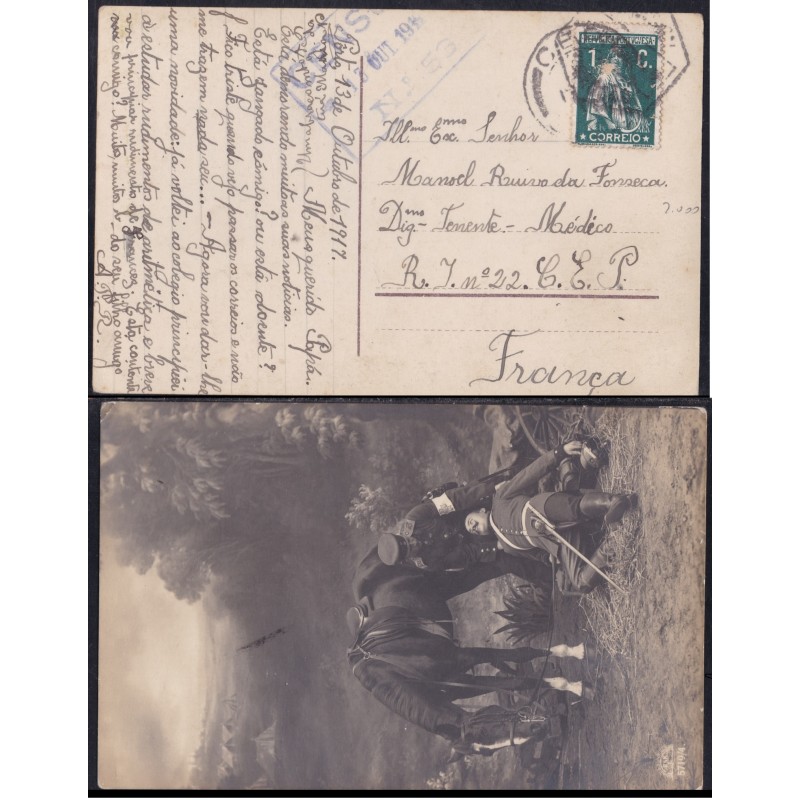 Porto, 13 de Outubro de 1917.
Meus querido Papá..
Está demorando muito as suas noticias.
Está zangado cómigo? ou está doente?
Fico triste quando vejo passar os correios e não
me tragem nada seu... — Agora vou dar-lhe
uma novidade: já voltei ao colegio principiei
a estudar rudimentos de aritmetica e breve
vou principiar rudimentos de Está contente
cómigo? Muito, muito b- do seu filho amigo
A. F. R.
CENSURA
13 OUT. 191
Nº 59
REPUBLICA PORTUGUESA
1 C.
CORREIO
Ill.mo Ex.mo Senhor
Manoel Ruivo da Fonseca.
Dig.mo Tenente.- Médico
R. I. nº 22. C. E. P.
França